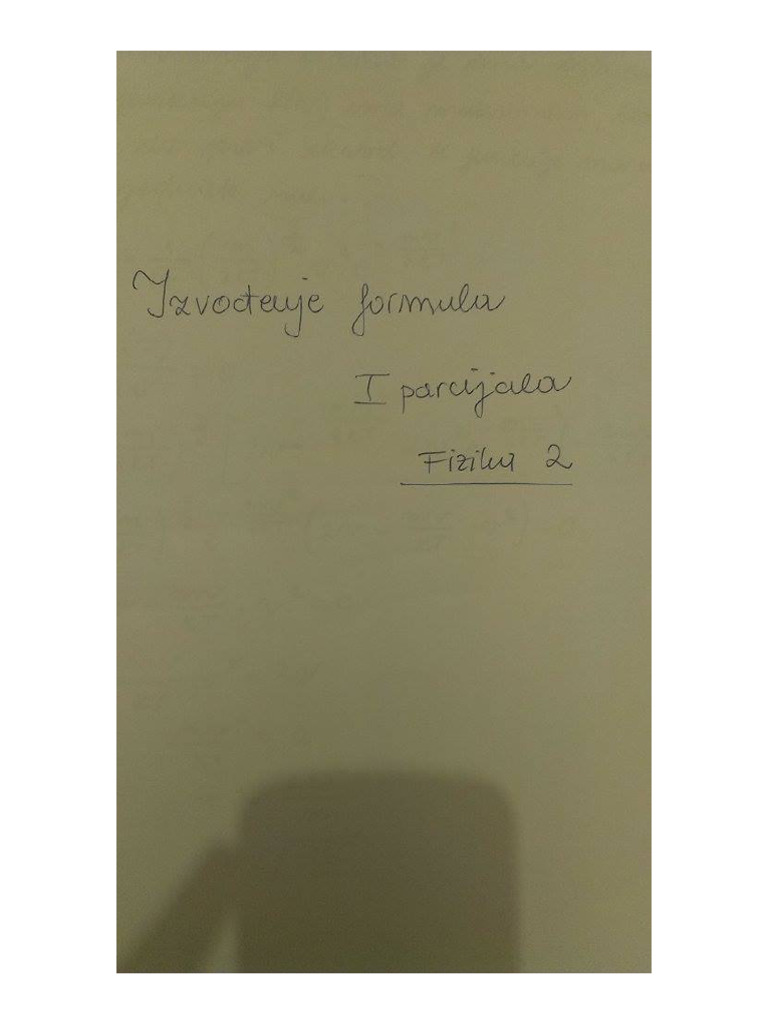 Izvođenje formula
I parcijala
Fizika 2